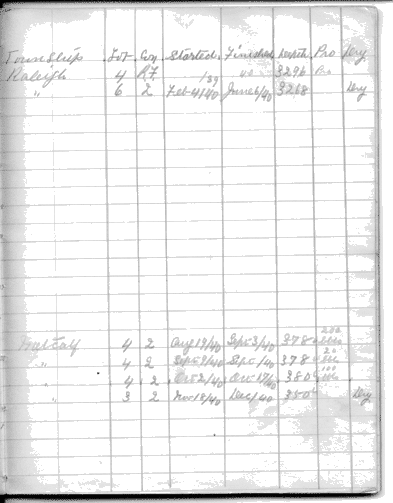 Township Lot Con Started Finished Depth Pro Dry
Raleigh 4 R.F /39 40 3296 Pro
" 6 2 Feb 4/40 June 6/40 3268 Dry
200
4 2 Aug 19/40 Sept 3/40 378
20
" 4 2 Sept 9/40 Sept /40 378
100
" 4 2 Oct 2/40 Oct 17/40 380
" 3 2 Nov 18/40 Dec /40 380 Dry